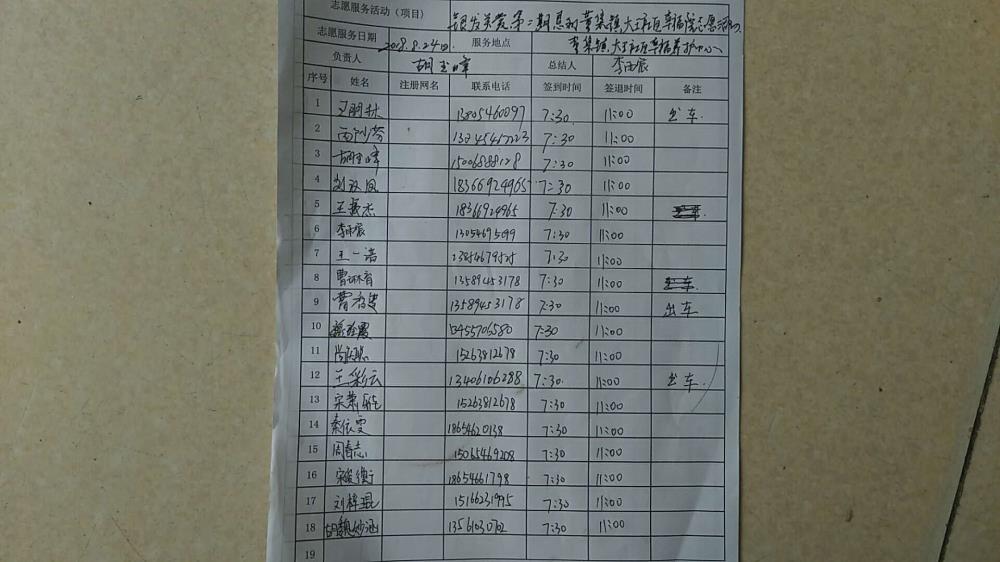 志愿服务活动（项目） 银发关爱第二期惠的董集镇大王社区幸福院志愿活动
志愿服务日期 2018.9.24日 服务地点 董集镇大王社区幸福养护中心
负责人 胡玉峰 总结人 李雨宸
序号 姓名 注册网名 联系电话 签到时间 签退时间 备注
1 13805460097 7:30 11:00 出车
2 7:30 11:00
3 胡玉峰 15006888128 7:30 11:00
4 刘汝凤 18366924965 7:30 11:00
5 王毅杰 18366924965 7:30 11:00
6 李雨宸 13054695099 7:30 11:00
7 王一诺 7:30 11:00
8 曹琳育 13589453178 7:30 11:00
9 13589453178 7:30 11:00 出车
10 13455706580 7:30 11:00
11 15263812678 7:30 11:00
12 王彩云 13406106288 7:30 11:00 出车
13 15263812678 7:30 11:00
14 秦依雯 18654620138 7:30 11:00
15 周春志 15065469208 7:30 11:00
16 18654661798 7:30 11:00
17 刘梓琨 15166231995 7:30 11:00
18 胡魏妙涵 7:30 11:00
19